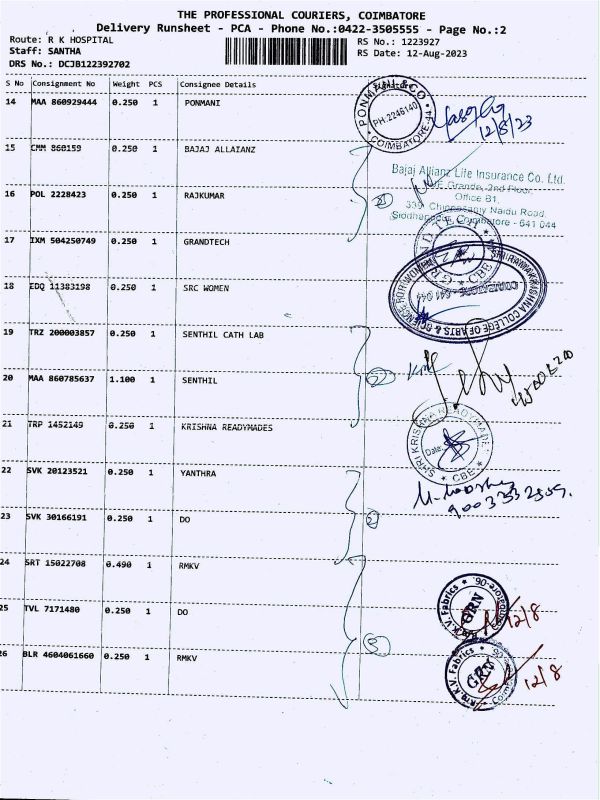 THE PROFESSIONAL COURIERS, COIMBATORE
Delivery Runsheet - PCA - Phone No.:0422-3505555 - Page No.:2
Route: R K HOSPITAL
Staff: SANTHA
DRS No.: DCJB122392702
RS No.: 1223927
RS Date: 12-Aug-2023
S No Consignment No Weight PCS Consignee Details
14 MAA 860929444 0.250 1 PONMANI
PONMANI & CO
PH:2246140
COIMBATORE-44
12/8/23
15 CMM 860159 0.250 1 BAJAJ ALLAIANZ
Bajaj Allianz Life Insurance Co. Ltd.
Grande, 2nd Floor,
Office B1,
Naidu Road,
Coimbatore - 641 044
16 POL 2228423 0.250 1 RAJKUMAR
17 IXM 504250749 0.250 1 GRANDTECH
CBE
18 EDQ 11383198 0.250 1 SRC WOMEN
SRI RAMAKRISHNA COLLEGE OF ARTS & SCIENCE FOR WOMEN
COIMBATORE - 641 044
19 TRZ 200003857 0.250 1 SENTHIL CATH LAB
20 MAA 860785637 1.100 1 SENTHIL
21 TRP 1452149 0.250 1 KRISHNA READYMADES
SHRI KRISHNA READYMADES
Date:
CBE
22 SVK 20123521 0.250 1 YANTHRA
23 SVK 30166191 0.250 1 DO
24 SRT 15022708 0.490 1 RMKV
25 TVL 7171480 0.250 1 DO
Rm.K.V. Fabrics
GRN
12/8
26 BLR 4604061660 0.250 1 RMKV
Rm.K.V. Fabrics
GRN
12/8